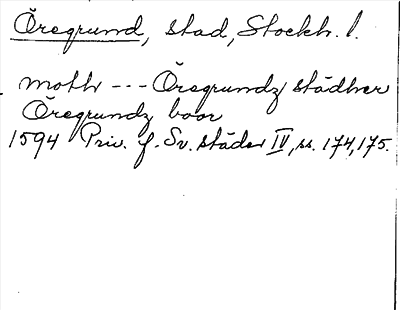 Öregrund, stad, Stockh. l.
moth --- Öregrundz städher
Öregrundz boor
1594 Priv. f. Sv. städer IV, ss. 174, 175.